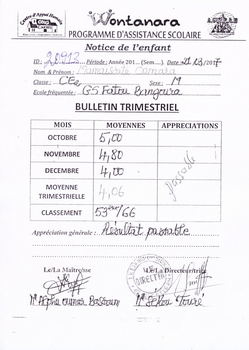 Wontanara
PROGRAMME D'ASSISTANCE SCOLAIRE
Notice de l'enfant
ID : 20912 Période : Année 201... (Sem....) Date
Nom & Prénom : Camara
Classe : CE2 Série : M
Ecole fréquentée : GS Fatou Bangoura
BULLETIN TRIMESTRIEL
MOIS MOYENNES APPRECIATIONS
OCTOBRE 5,00
NOVEMBRE 4,80
DECEMBRE 4,00
passable
MOYENNE TRIMESTRIELLE 4,06
CLASSEMENT 53ème/66
Appréciation générale : Résultat passable
Le/La Maître/sse Le/La Directeur/trice
Mr Alpha oumar Mr Sékou Touré